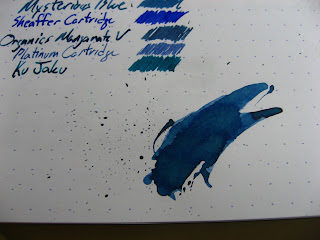 Mysterious Blue.
Sheaffer Cartridge
Organics Manganate V
Platinum Cartridge
Ku Jaku